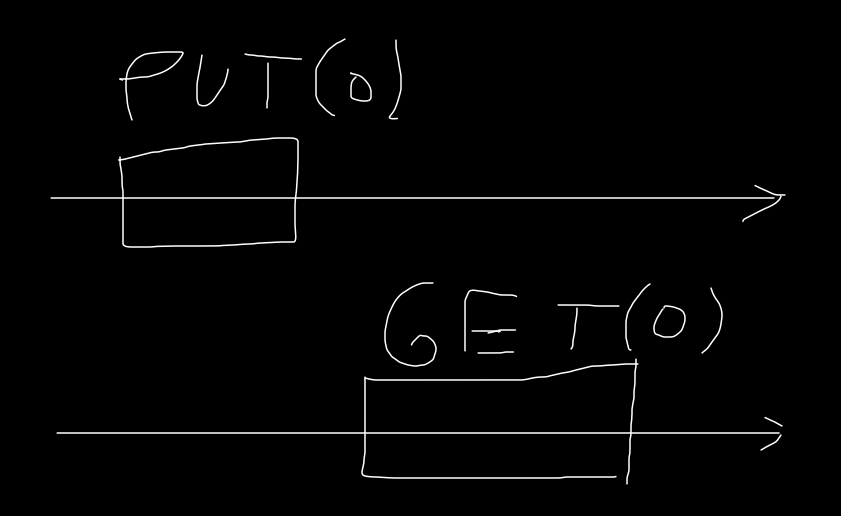 PUT(0)
GET(0)